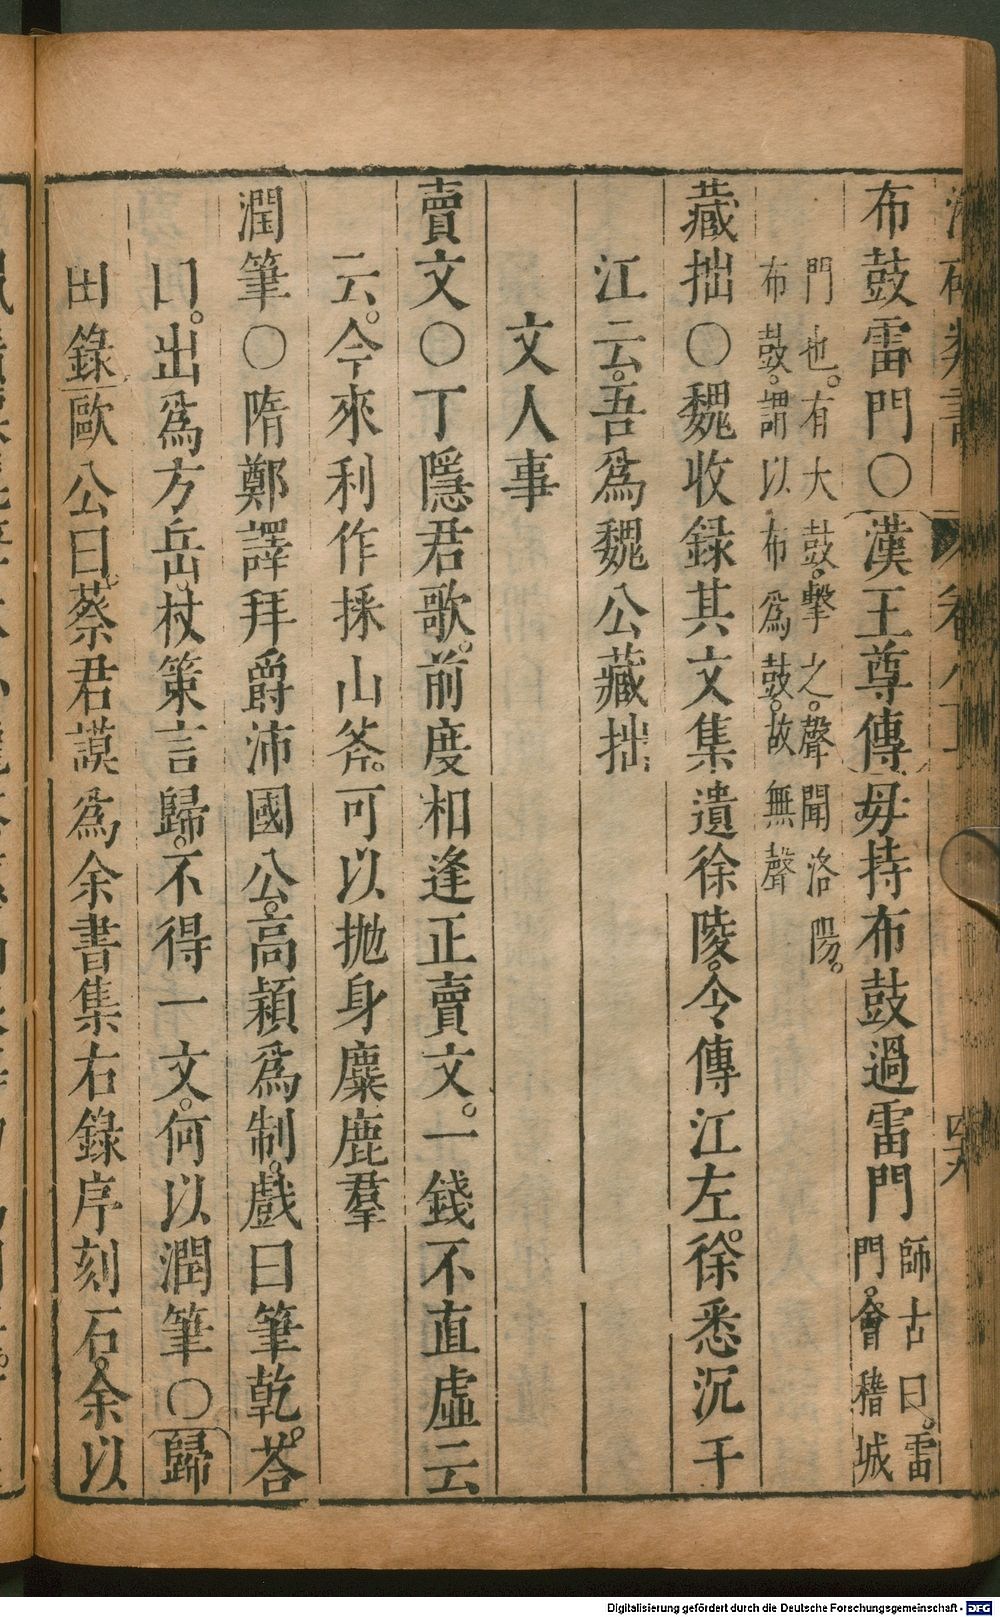 布鼓雷門〇漢王尊傳毋持布鼓過雷門師古曰。雷
門。會稽城
門也。有大鼓。擊之。聲聞洛陽。
布鼓。謂以布爲鼓。故無聲
藏拙〇魏收録其文集遺徐陵。令傳江左。徐悉沉于
江云。吾爲魏公藏拙
文人事
賣文〇丁隱君歌。前度相逢正賣文。一錢不直虛云
云。今來利作採山斧。可以抛身麋鹿羣
潤筆〇隋鄭譯拜爵沛國公。高潁爲制。戲曰筆乾。荅
曰。出爲方岳。杖策言歸。不得一文。何以潤筆〇歸
田錄歐公曰。蔡君謨爲余書集右錄序刻石。余以
卷八
四九
Digitalisierung gefördert durch die Deutsche Forschungsgemeinschaft - DFG